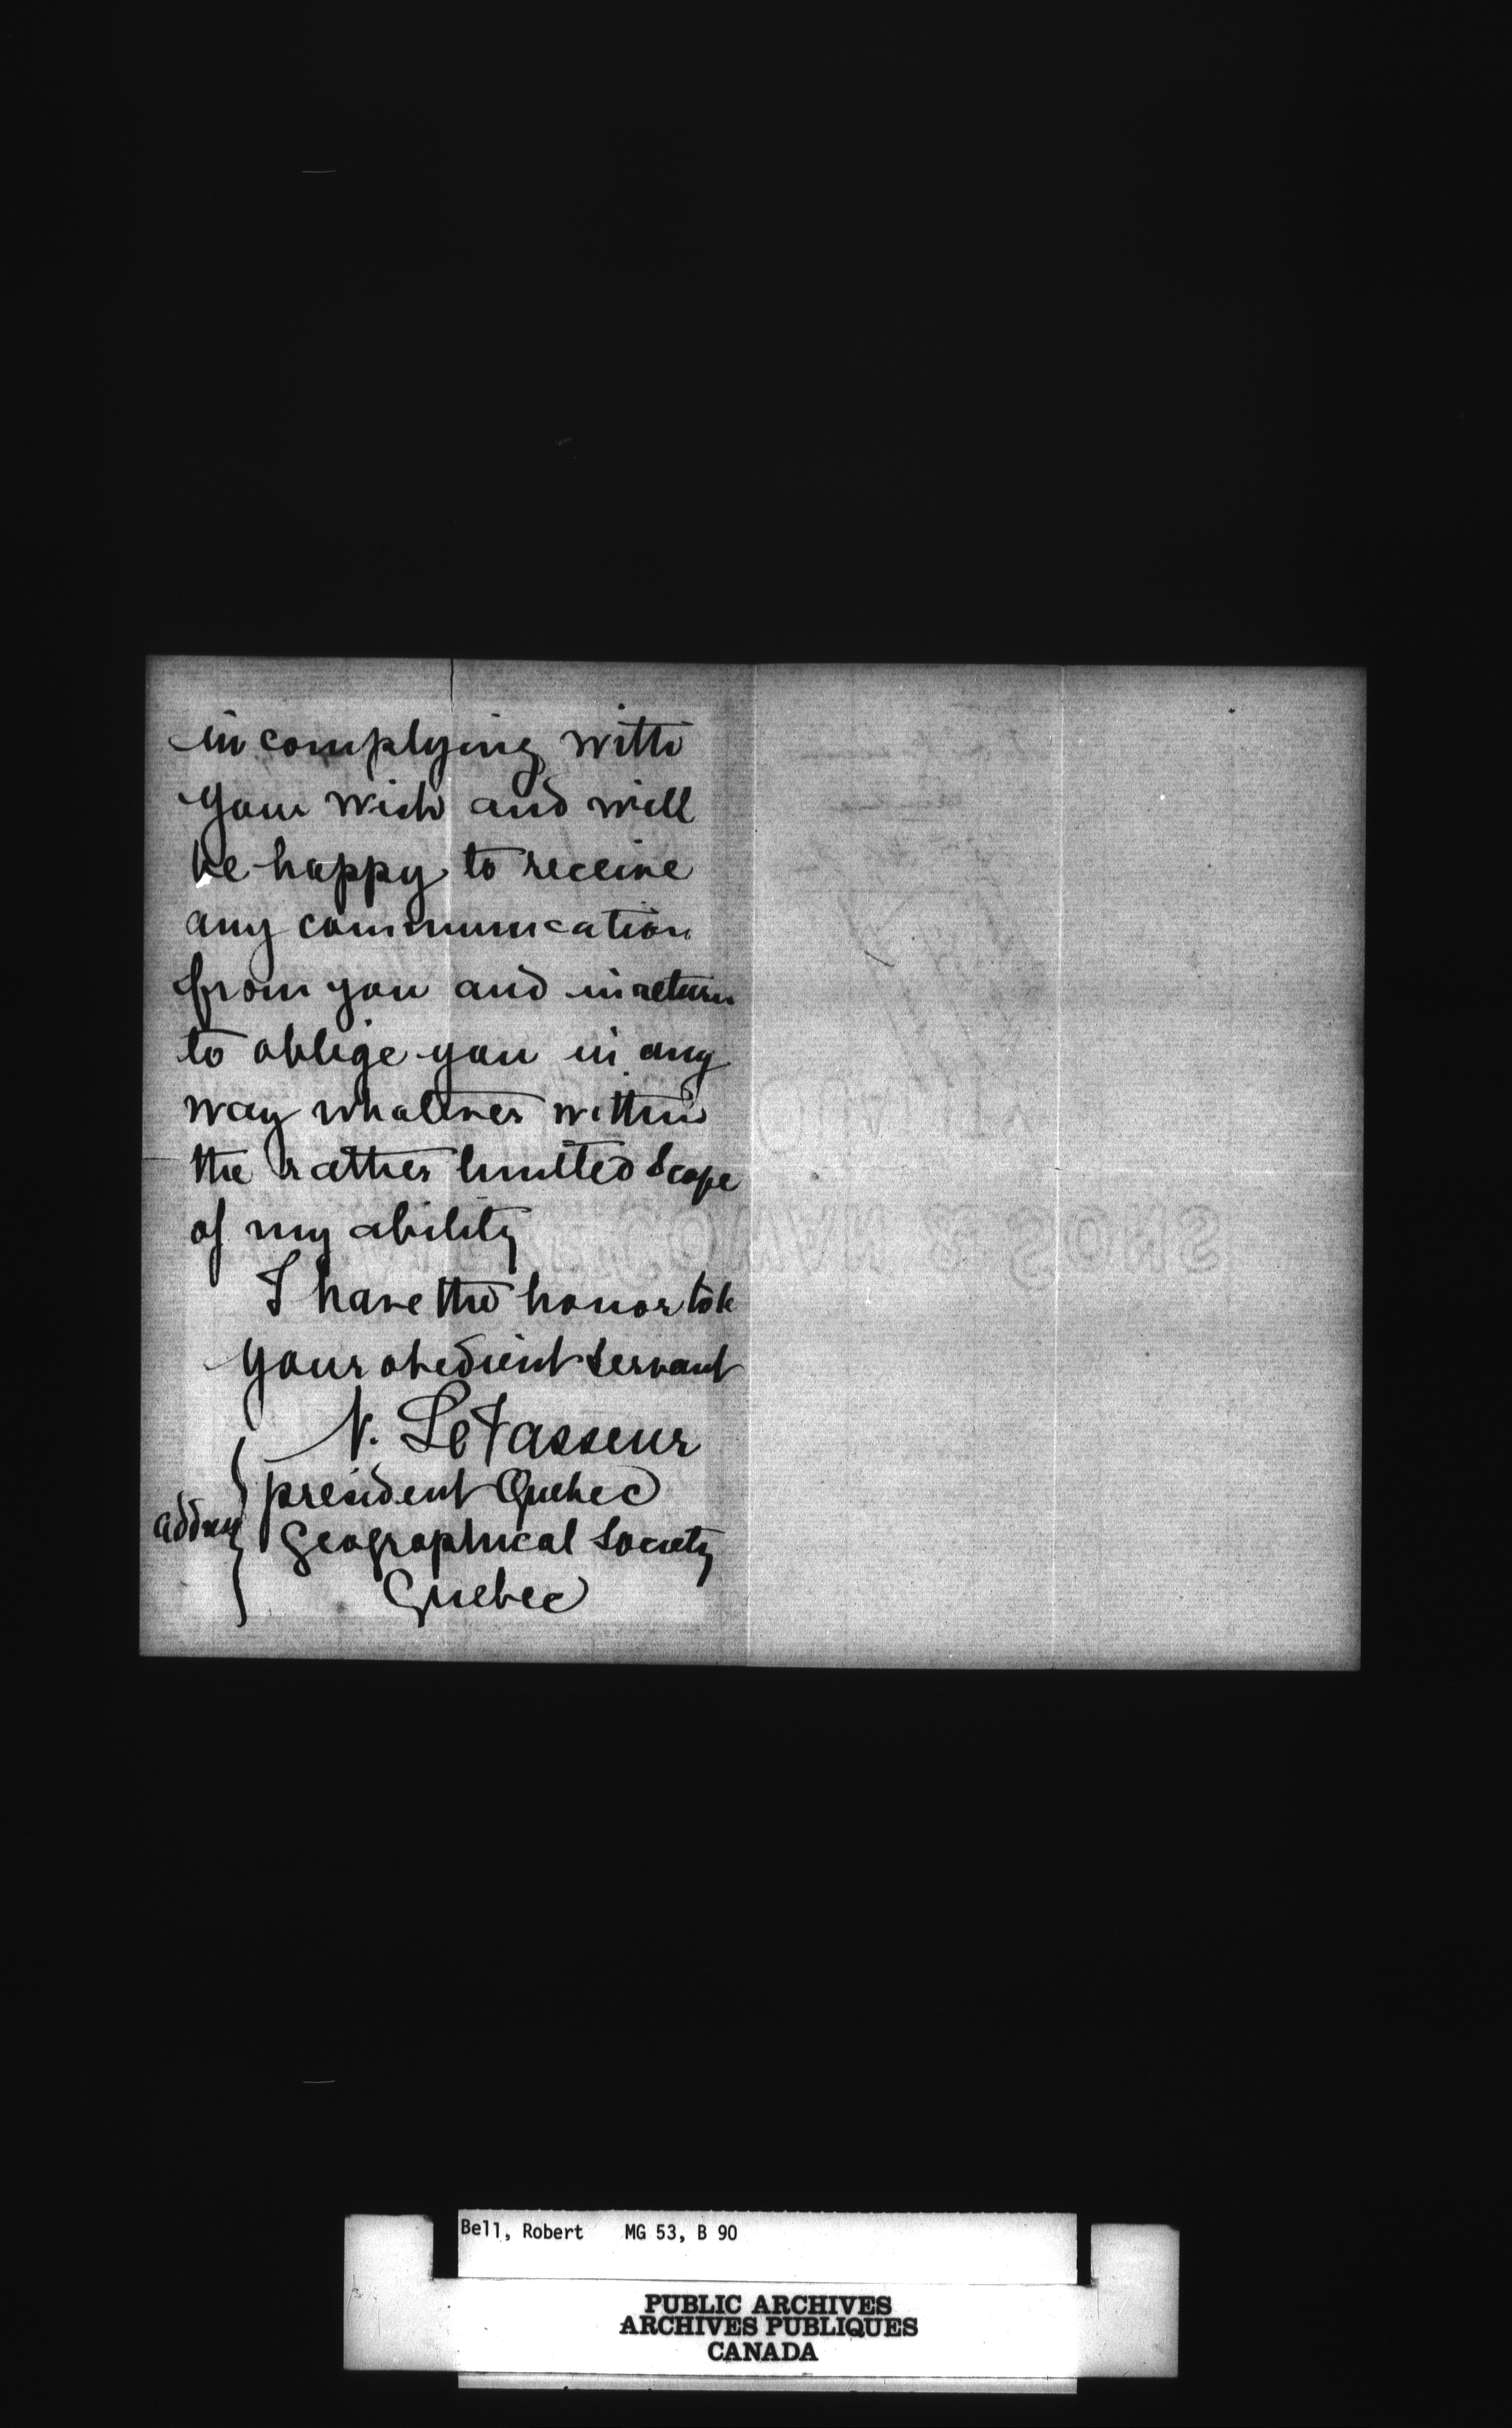 in complying with
your wish and will
be happy to receive
any communication
from you and in return
to oblige you in any
way whatever within
the rather limited scope
of my ability
I have the honor to be
your obedient servant
N. LeVasseur
president Quebec
address Geographical Society
Quebec
Bell, Robert MG 53, B 90
PUBLIC ARCHIVES
ARCHIVES PUBLIQUES
CANADA